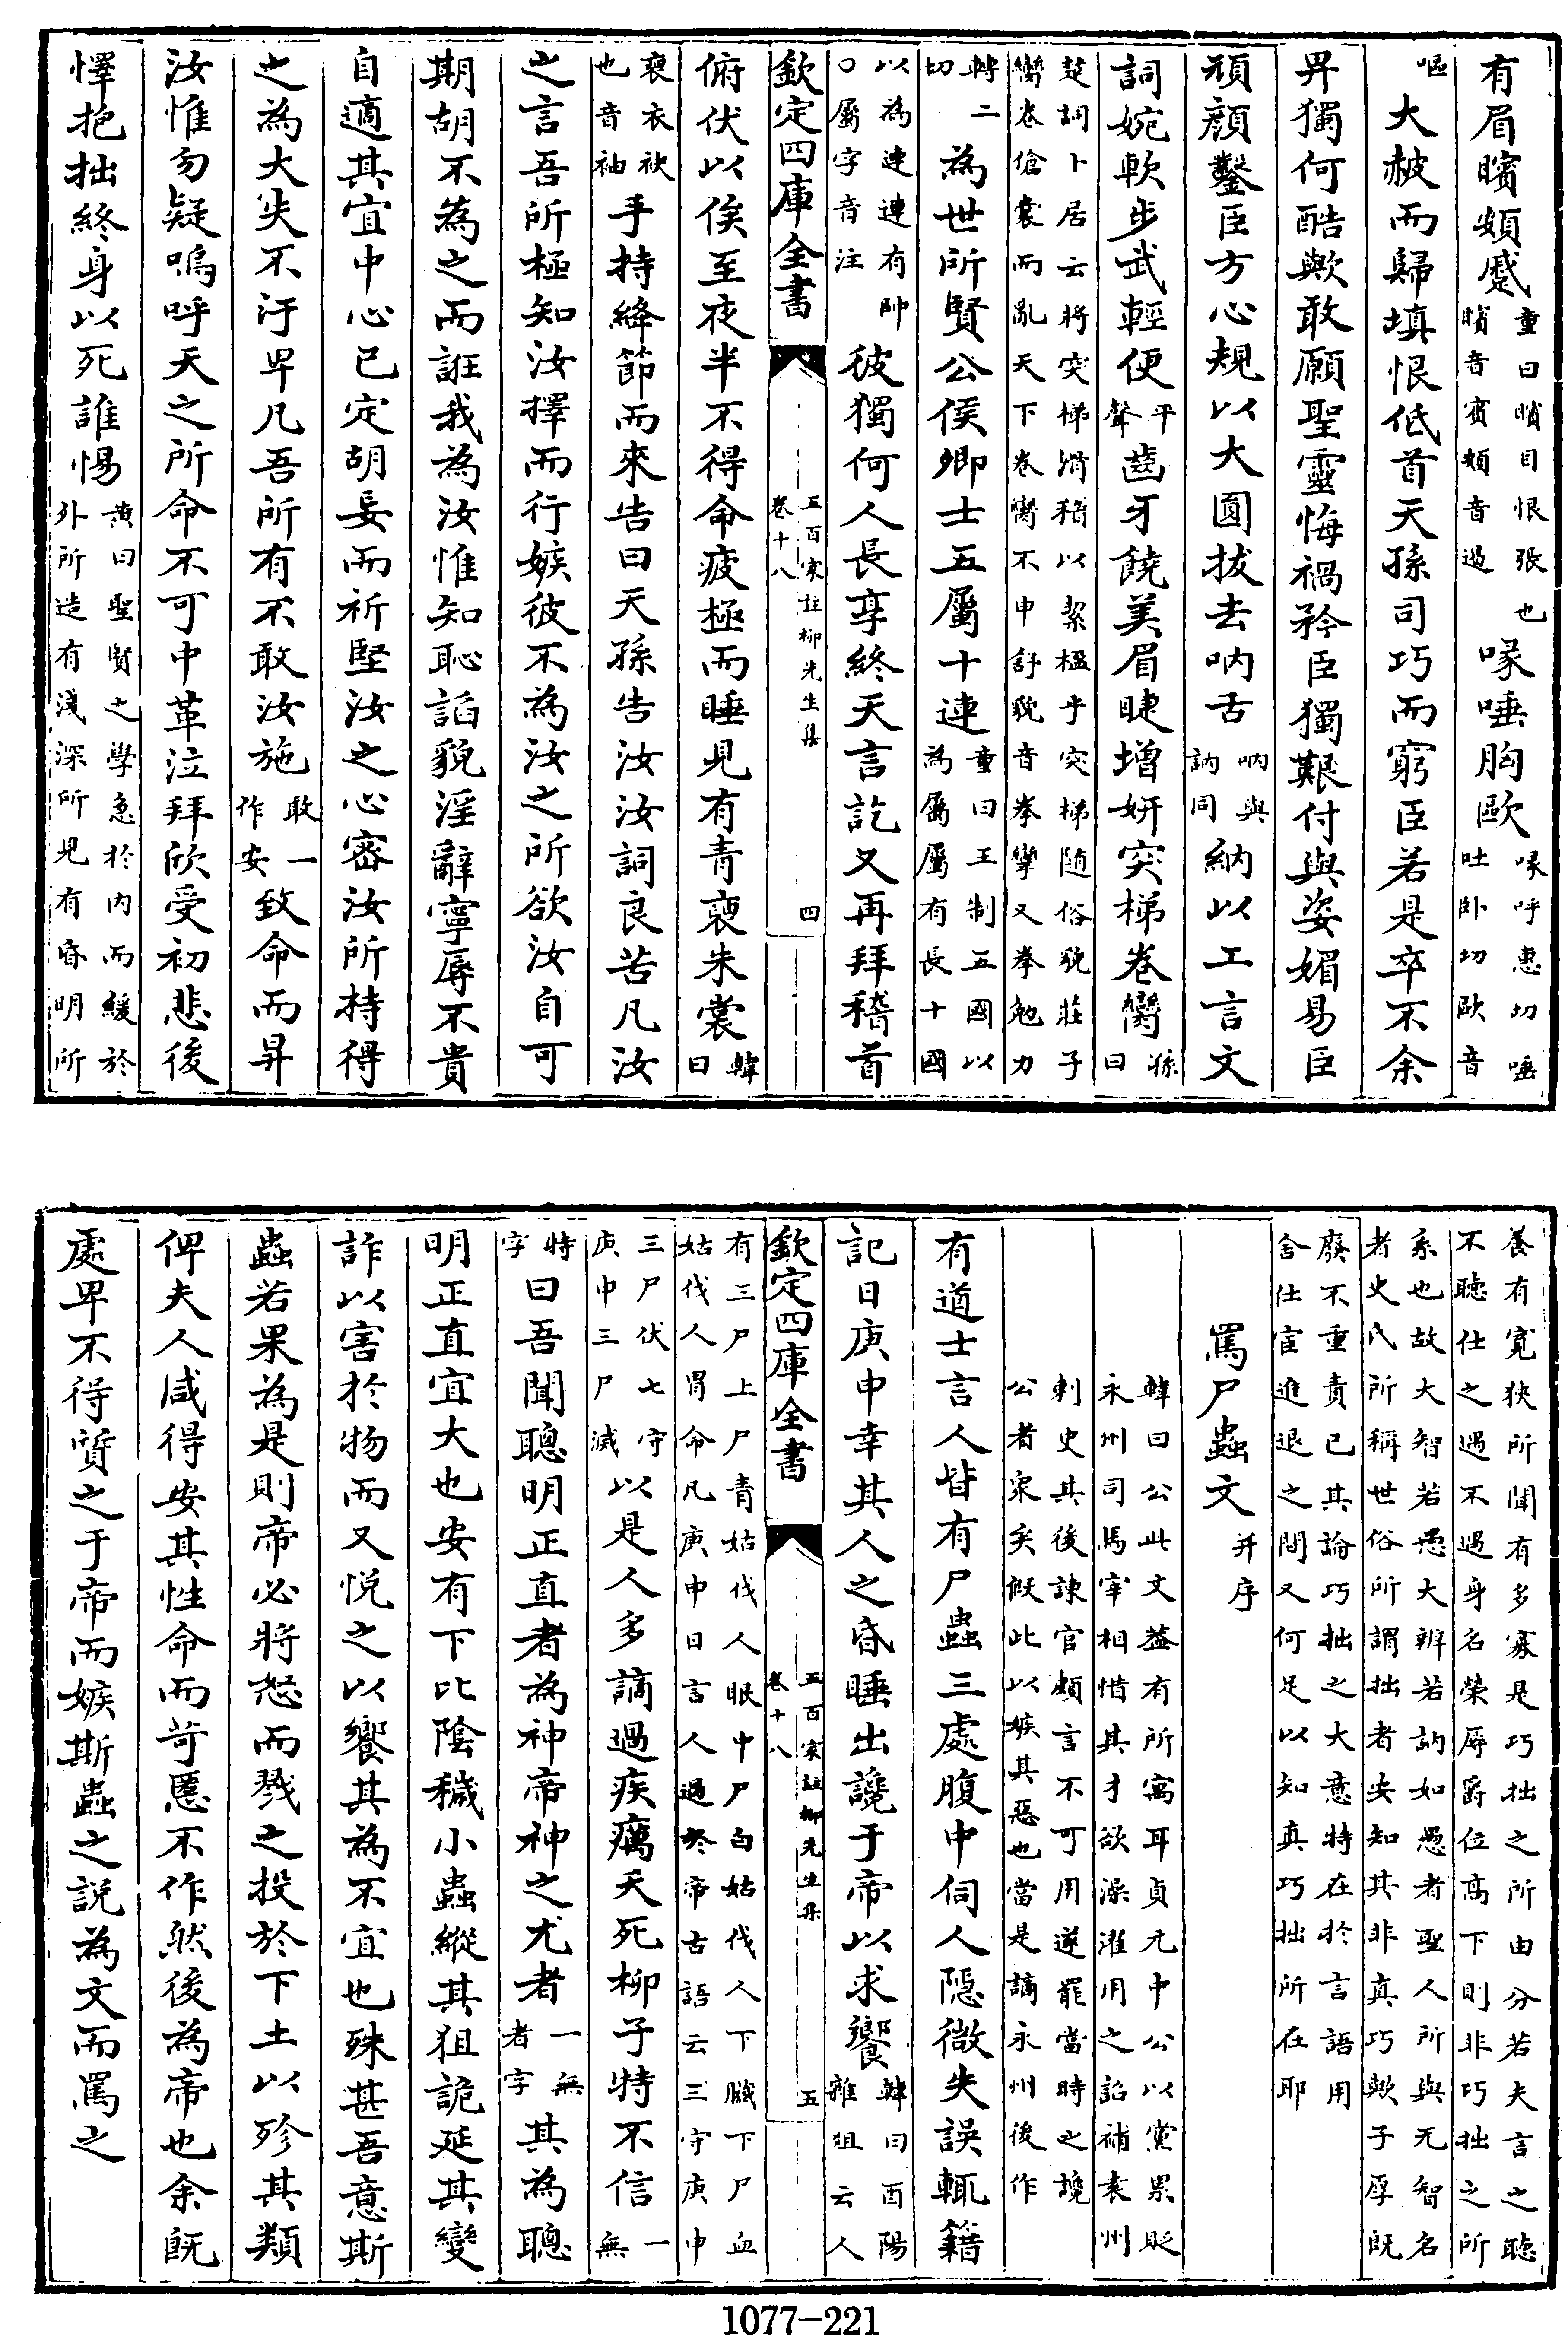 有眉矉頞蹙童曰矉目恨張也矉音賓頞音遏喙唾胸歐喙呼惠切唾吐卧切歐音
嘔大赧而歸填恨低首天孫司巧而窮臣若是卒不余
畀獨何酷歟敢願聖靈悔禍矜臣獨艱付與姿媚易臣
頑顔鑿臣方心規以大圓拔去吶舌吶與訥同納以工言文
詞婉軟步武輕便平聲齒牙饒美眉睫增妍突梯卷臠孫曰
楚詞卜居云將突梯滑稽以絜楹乎突梯随俗貌莊子臠卷傖囊而亂天下卷臠不申舒貌音拳攣又拳勉力
轉二切為世所賢公侯卿士五屬十連童曰王制五國以為屬屬有長十國
以為連連有帥○屬字音注彼獨何人長享終天言訖又再拜稽首
欽定四庫全書
五百家註柳先生集
卷十八
四
俯伏以俟至夜半不得命疲極而睡見有青褏朱裳韓曰
褏衣袂也音袖手持絳節而來告曰天孫告汝汝詞良苦凡汝
之言吾所極知汝擇而行嫉彼不為汝之所欲汝自可
期胡不為之而誑我為汝惟知恥諂貌淫辭寧辱不貴
自適其宜中心已定胡妄而祈堅汝之心密汝所持得
之為大失不汙卑凡吾所有不敢汝施敢一作安致命而昇
汝惟勿疑嗚呼天之所命不可中革泣拜欣受初悲後
懌抱拙終身以死誰惕黄曰聖賢之學急於内而緩於外所造有淺深所見有昏明所
養有寛狹所聞有多寡是巧拙之所由分若夫言之聽不聽仕之遇不遇身名榮辱爵位高下則非巧拙之所
系也故大智若愚大辨若訥如愚者聖人所與无智名者史氏所稱世俗所謂拙者安知其非真巧歟子厚既
廢不重責已其論巧拙之大意特在於言語用舍仕宦進退之間又何足以知真巧拙所在耶
罵尸蟲文并序
韓曰公此文葢有所寓耳貞元中公以黨累貶永州司馬宰相惜其才欲澡濯用之詔補袁州
刺史其後諫官頗言不可用遂罷當時之讒公者衆矣假此以嫉其惡也當是謫永州後作
有道士言人皆有尸蟲三處腹中伺人隠微失誤輒籍
記日庚申幸其人之昏睡出讒于帝以求饗韓曰酉陽雜俎云人
欽定四庫全書
五百家註柳先生集
卷十八
五
有三尸上尸青姑伐人眼中尸白姑伐人下臓下尸血姑伐人胃命凡庚申日言人過於帝古語云三守庚申
三尸伏七守庚申三尸滅以是人多謫過疾癘夭死柳子特不信一無
特字曰吾聞聰明正直者為神帝神之尤者一無者字其為聰
明正直宜大也安有下比陰穢小蟲縱其狙詭延其變
詐以害於物而又悦之以饗其為不宜也殊甚吾意斯
蟲若果為是則帝必將怒而戮之投於下土以殄其類
俾夫人咸得安其性命而苛慝不作然後為帝也余既
處卑不得質之于帝而嫉斯蟲之説為文而罵之
1077-221